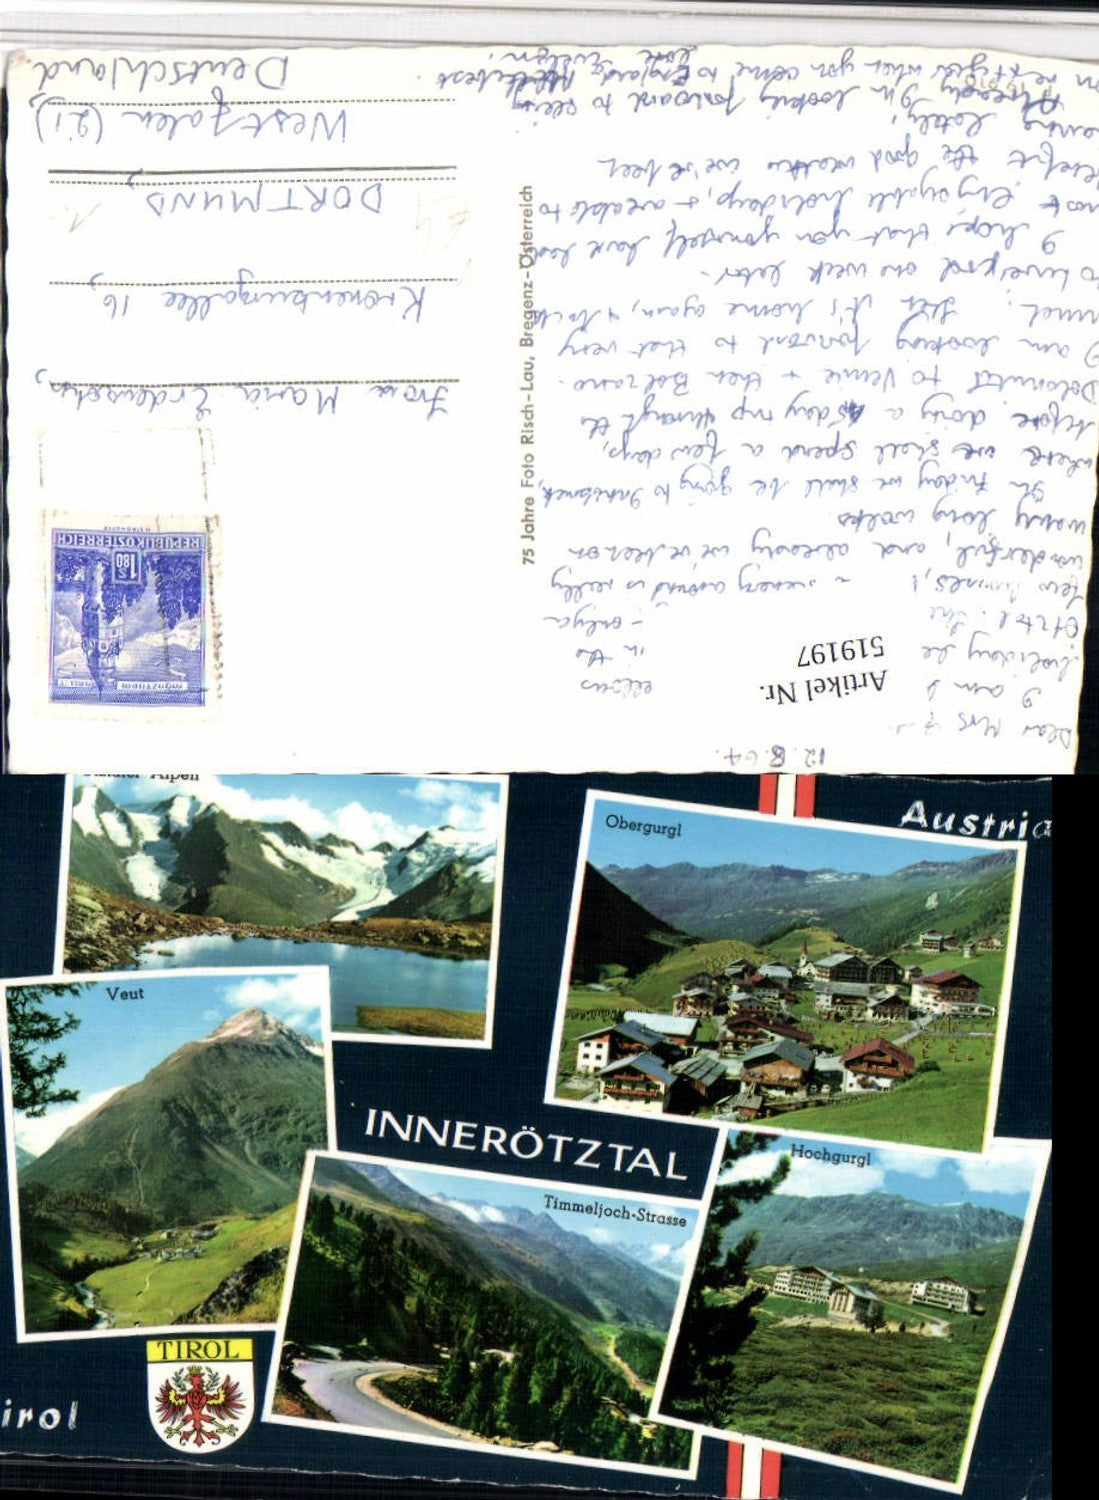 12.8.64.
Dear Mrs
I am
holiday he
in the
Ötztal. The
only a
few
scenery around is really
wonderful, and already we've been on
many long walks.
On Friday we shall be going to Innsbruck,
where we shall spend a few days,
before doing a day trip through the
Dolomites to Venice + then Bolzano.
I am looking forward to that very
much. it's home again, + back
to Liverpool one week later.
I hope that you yourself have had
most enjoyable holidays, + are able to
the good weather we've been
having lately.
Already I'm looking forward to seeing
when you come to England
Artikel Nr.
519197
75 Jahre Foto Risch-Lau, Bregenz-Österreich
MÜNZTURM
S 1.80
REPUBLIK ÖSTERREICH
Frau Maria Erdensohn,
Kronenburgallee 16,
DORTMUND,
Westfalen (21),
Deutschland.
Alpen
Obergurgl
Austria
Veut
INNERÖTZTAL
Hochgurgl
Timmeljoch-Strasse
TIROL
irol